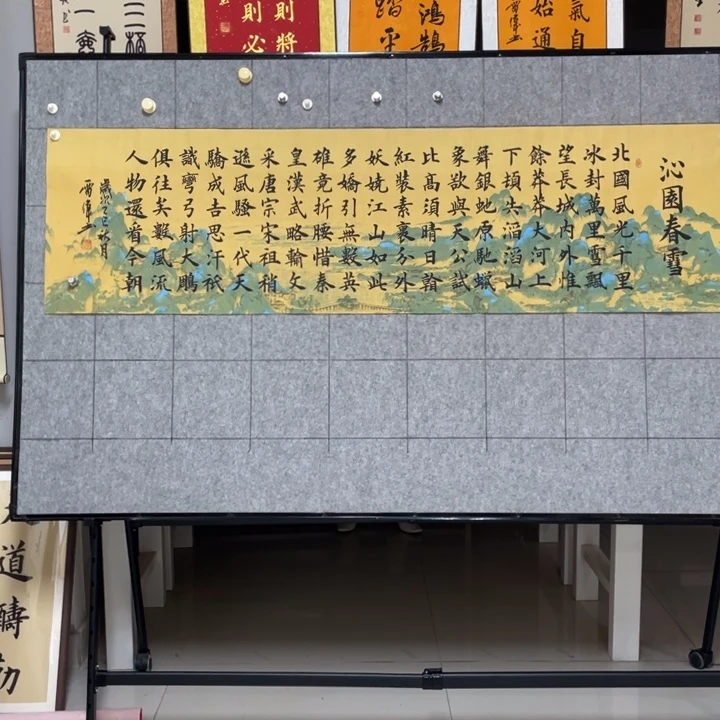 則將
則必
鴻鵠
踏平
氣自
始通
沁園春雪
北國風光千里
冰封萬里雪飄
望長城內外惟
餘莽莽大河上
下頓失滔滔山
舞銀蛇原馳蠟
象欲與天公試
比高須晴日看
紅裝素裹分外
妖嬈江山如此
多嬌引無數英
雄竟折腰惜秦
皇漢武略輸文
采唐宗宋祖稍
遜風騷一代天
驕成吉思汗祇
識彎弓射大鵰
俱往矣數風流
人物還看今朝
歲次乙巳秋月
道酬勤